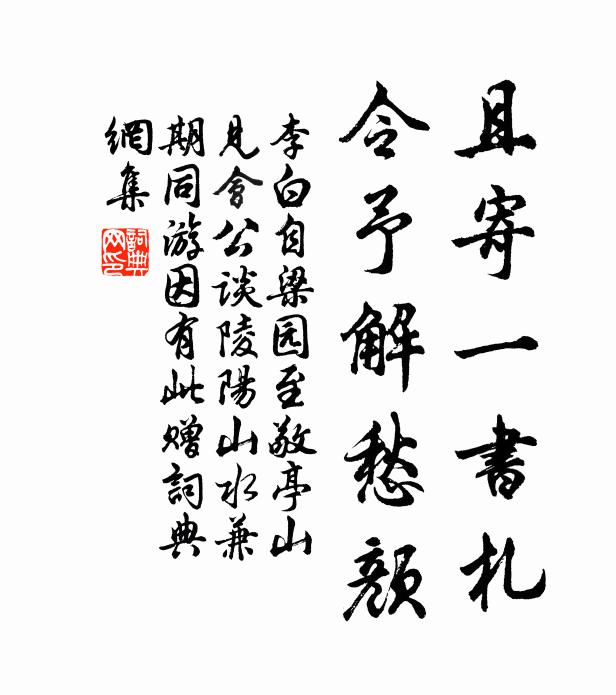 且寄一書札
令予解愁顏
李白自梁园至敬亭山
見會公谈陵陽山水兼
期同游因有此赠詞典
網集
詞典網印